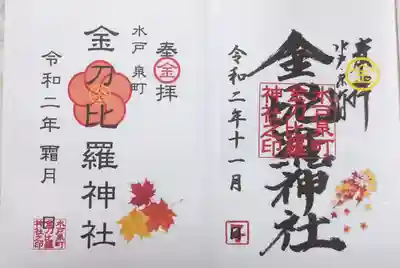 奉拝
金
水戸泉町
金刀比羅神社
水戸泉町
金刀比羅
神社之印
令和二年十一月 日
奉拝
金
水戸泉町
金刀比羅神社
令和二年 霜月 日
水戸泉町
金刀比羅
神社之印